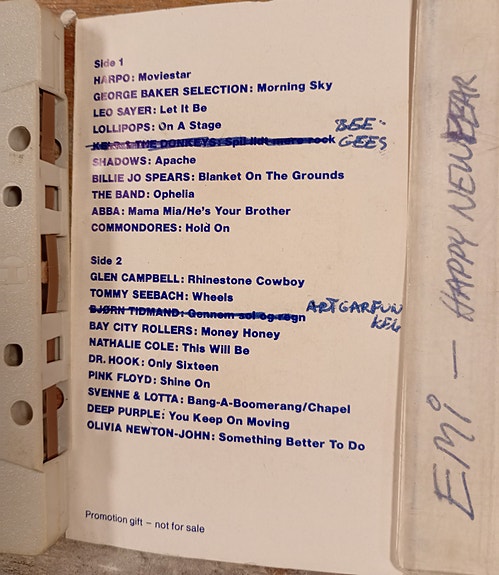 Side 1
HARPO: Moviestar
GEORGE BAKER SELECTION: Morning Sky
LEO SAYER: Let It Be
LOLLIPOPS: On A Stage
THE DONKEYS: Spil lidt mere rock BEE-
GEES
SHADOWS: Apache
BILLIE JO SPEARS: Blanket On The Grounds
THE BAND: Ophelia
ABBA: Mama Mia/He's Your Brother
COMMONDORES: Hold On
Side 2
GLEN CAMPBELL: Rhinestone Cowboy
TOMMY SEEBACH: Wheels
BJØRN TIDMAND: Gennem sol og regn ARTGARFUN
KEL
BAY CITY ROLLERS: Money Honey
NATHALIE COLE: This Will Be
DR. HOOK: Only Sixteen
PINK FLOYD: Shine On
SVENNE & LOTTA: Bang-A-Boomerang/Chapel
DEEP PURPLE: You Keep On Moving
OLIVIA NEWTON-JOHN: Something Better To Do
Promotion gift – not for sale
EMi — HAPPY NEWYEAR